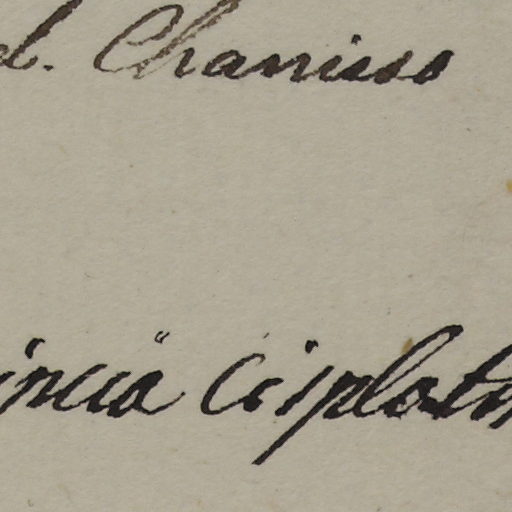 el. Chamisso
incia Cisplatin